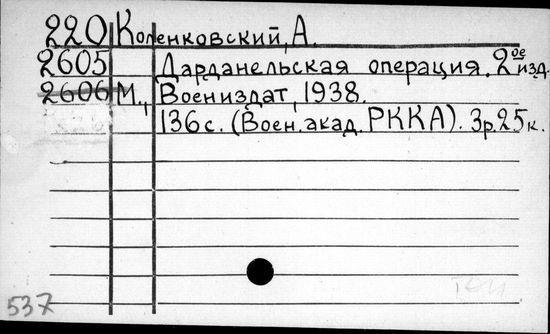 220 Коленковский, А.
2605 Дарданельская операция. 2ое изд.
2606 М., Воениздат, 1938.
136 с. (Воен. акад. РККА). 3р.25к.
537